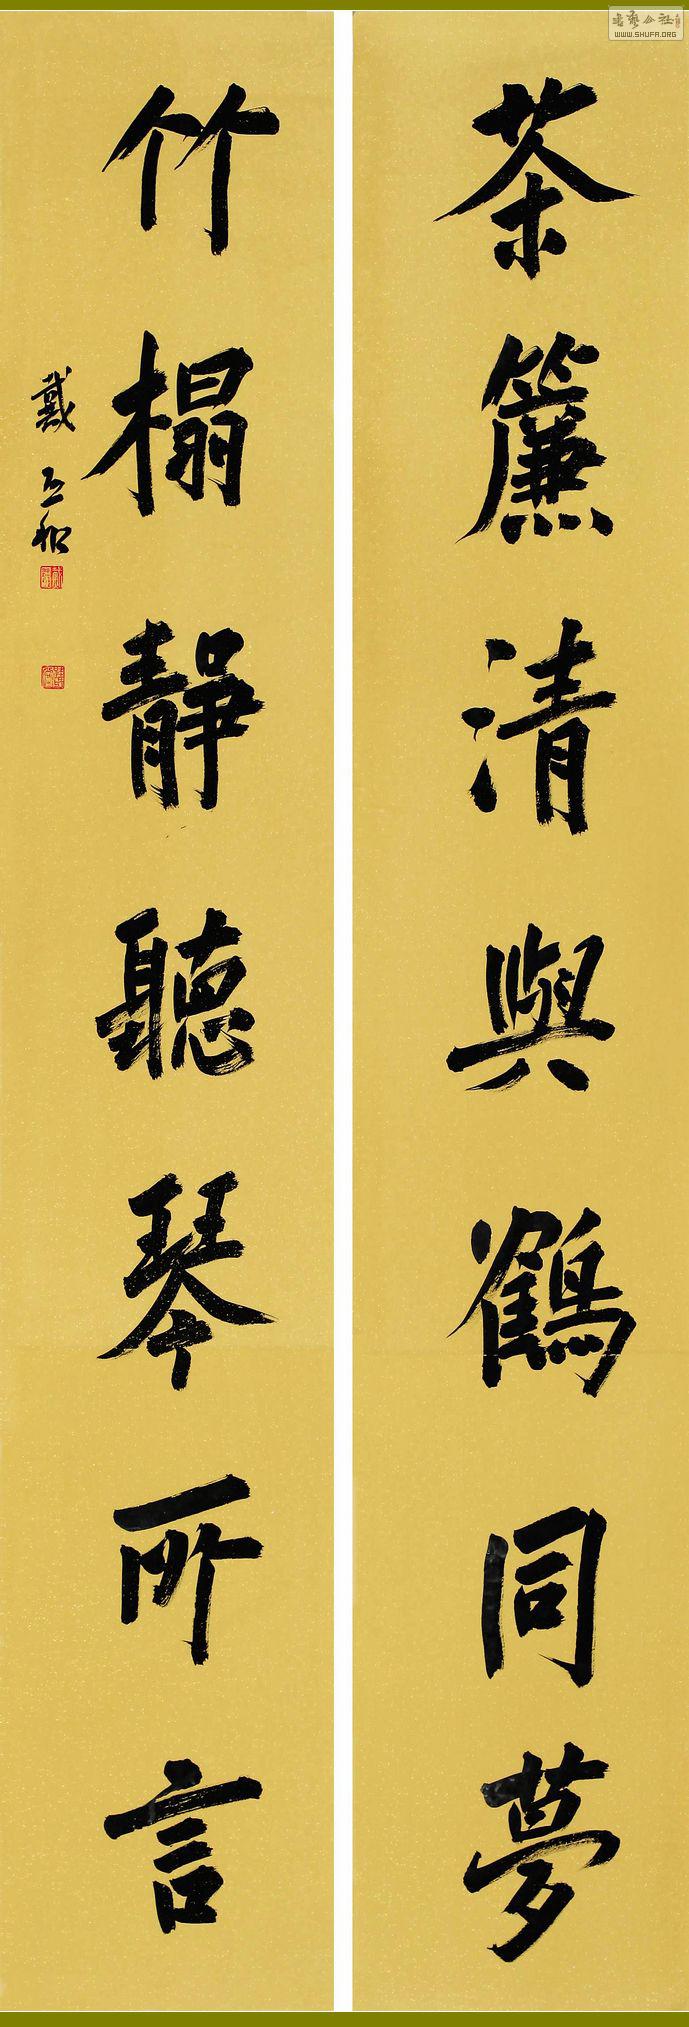 茶簾清與鶴同夢
竹榻靜聽琴所言
戴
書藝公社
WWW.SHUFA.ORG